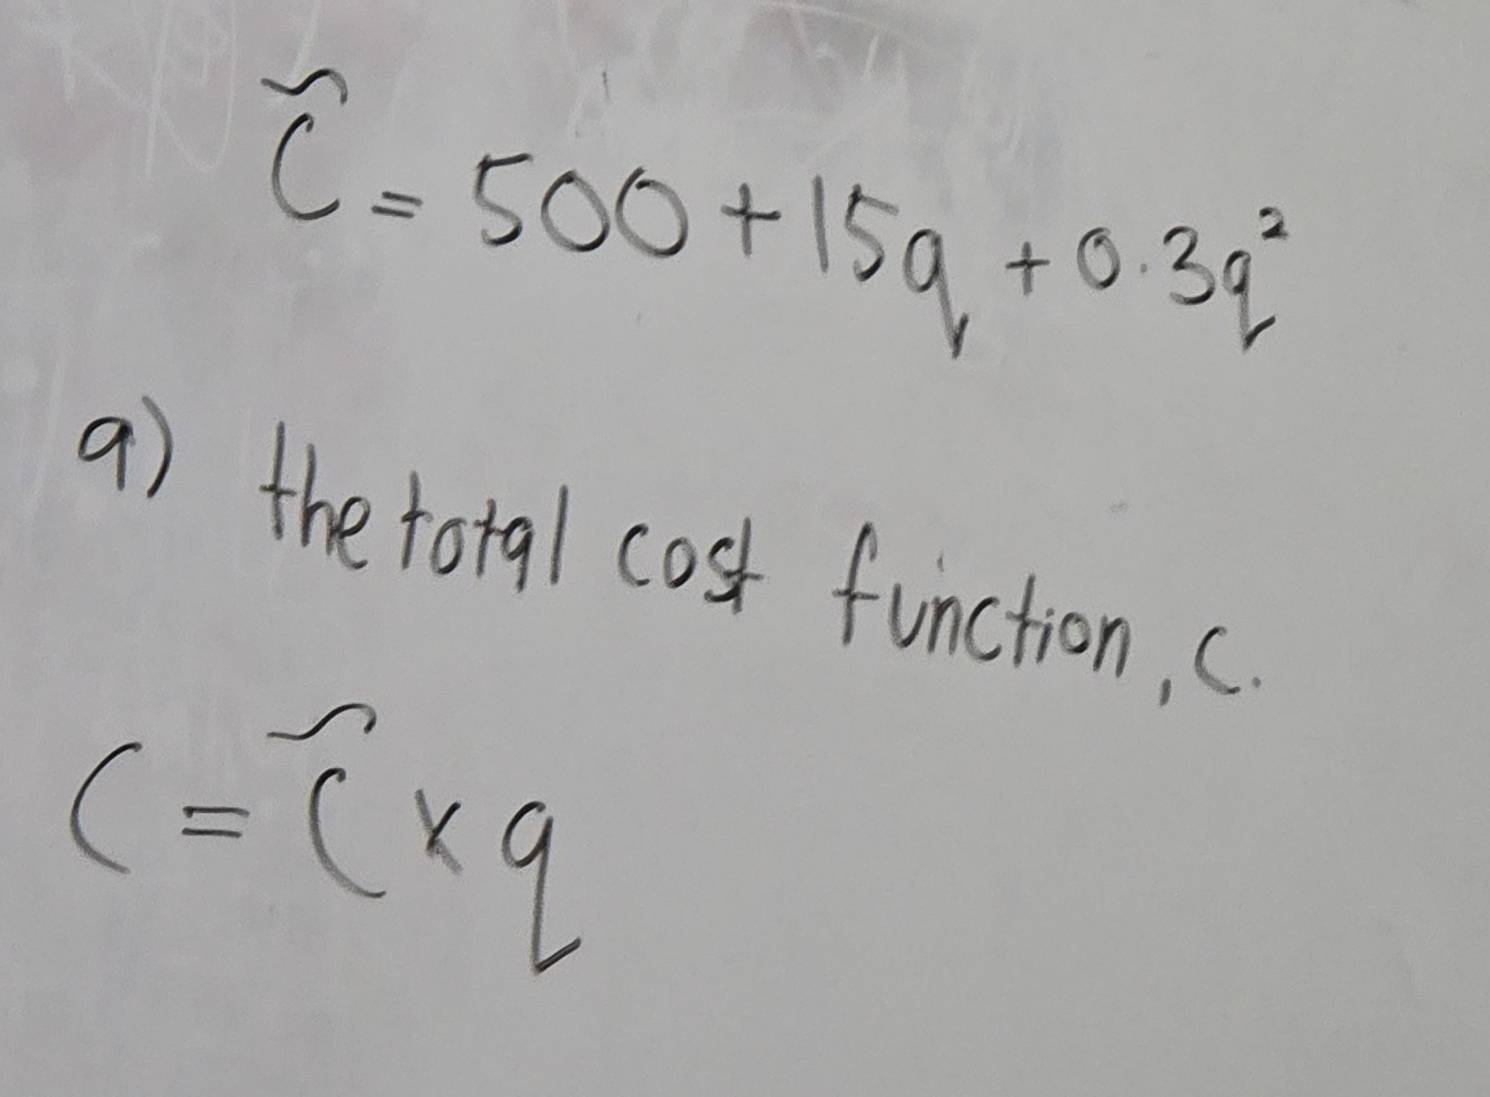 C̃ = 500 + 15q + 0.3q²
a) the total cost function, c.
C = C̃ x q